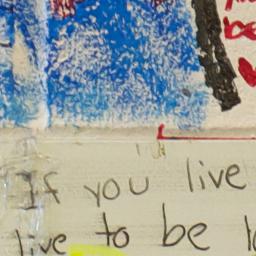 be
If you live
live to be